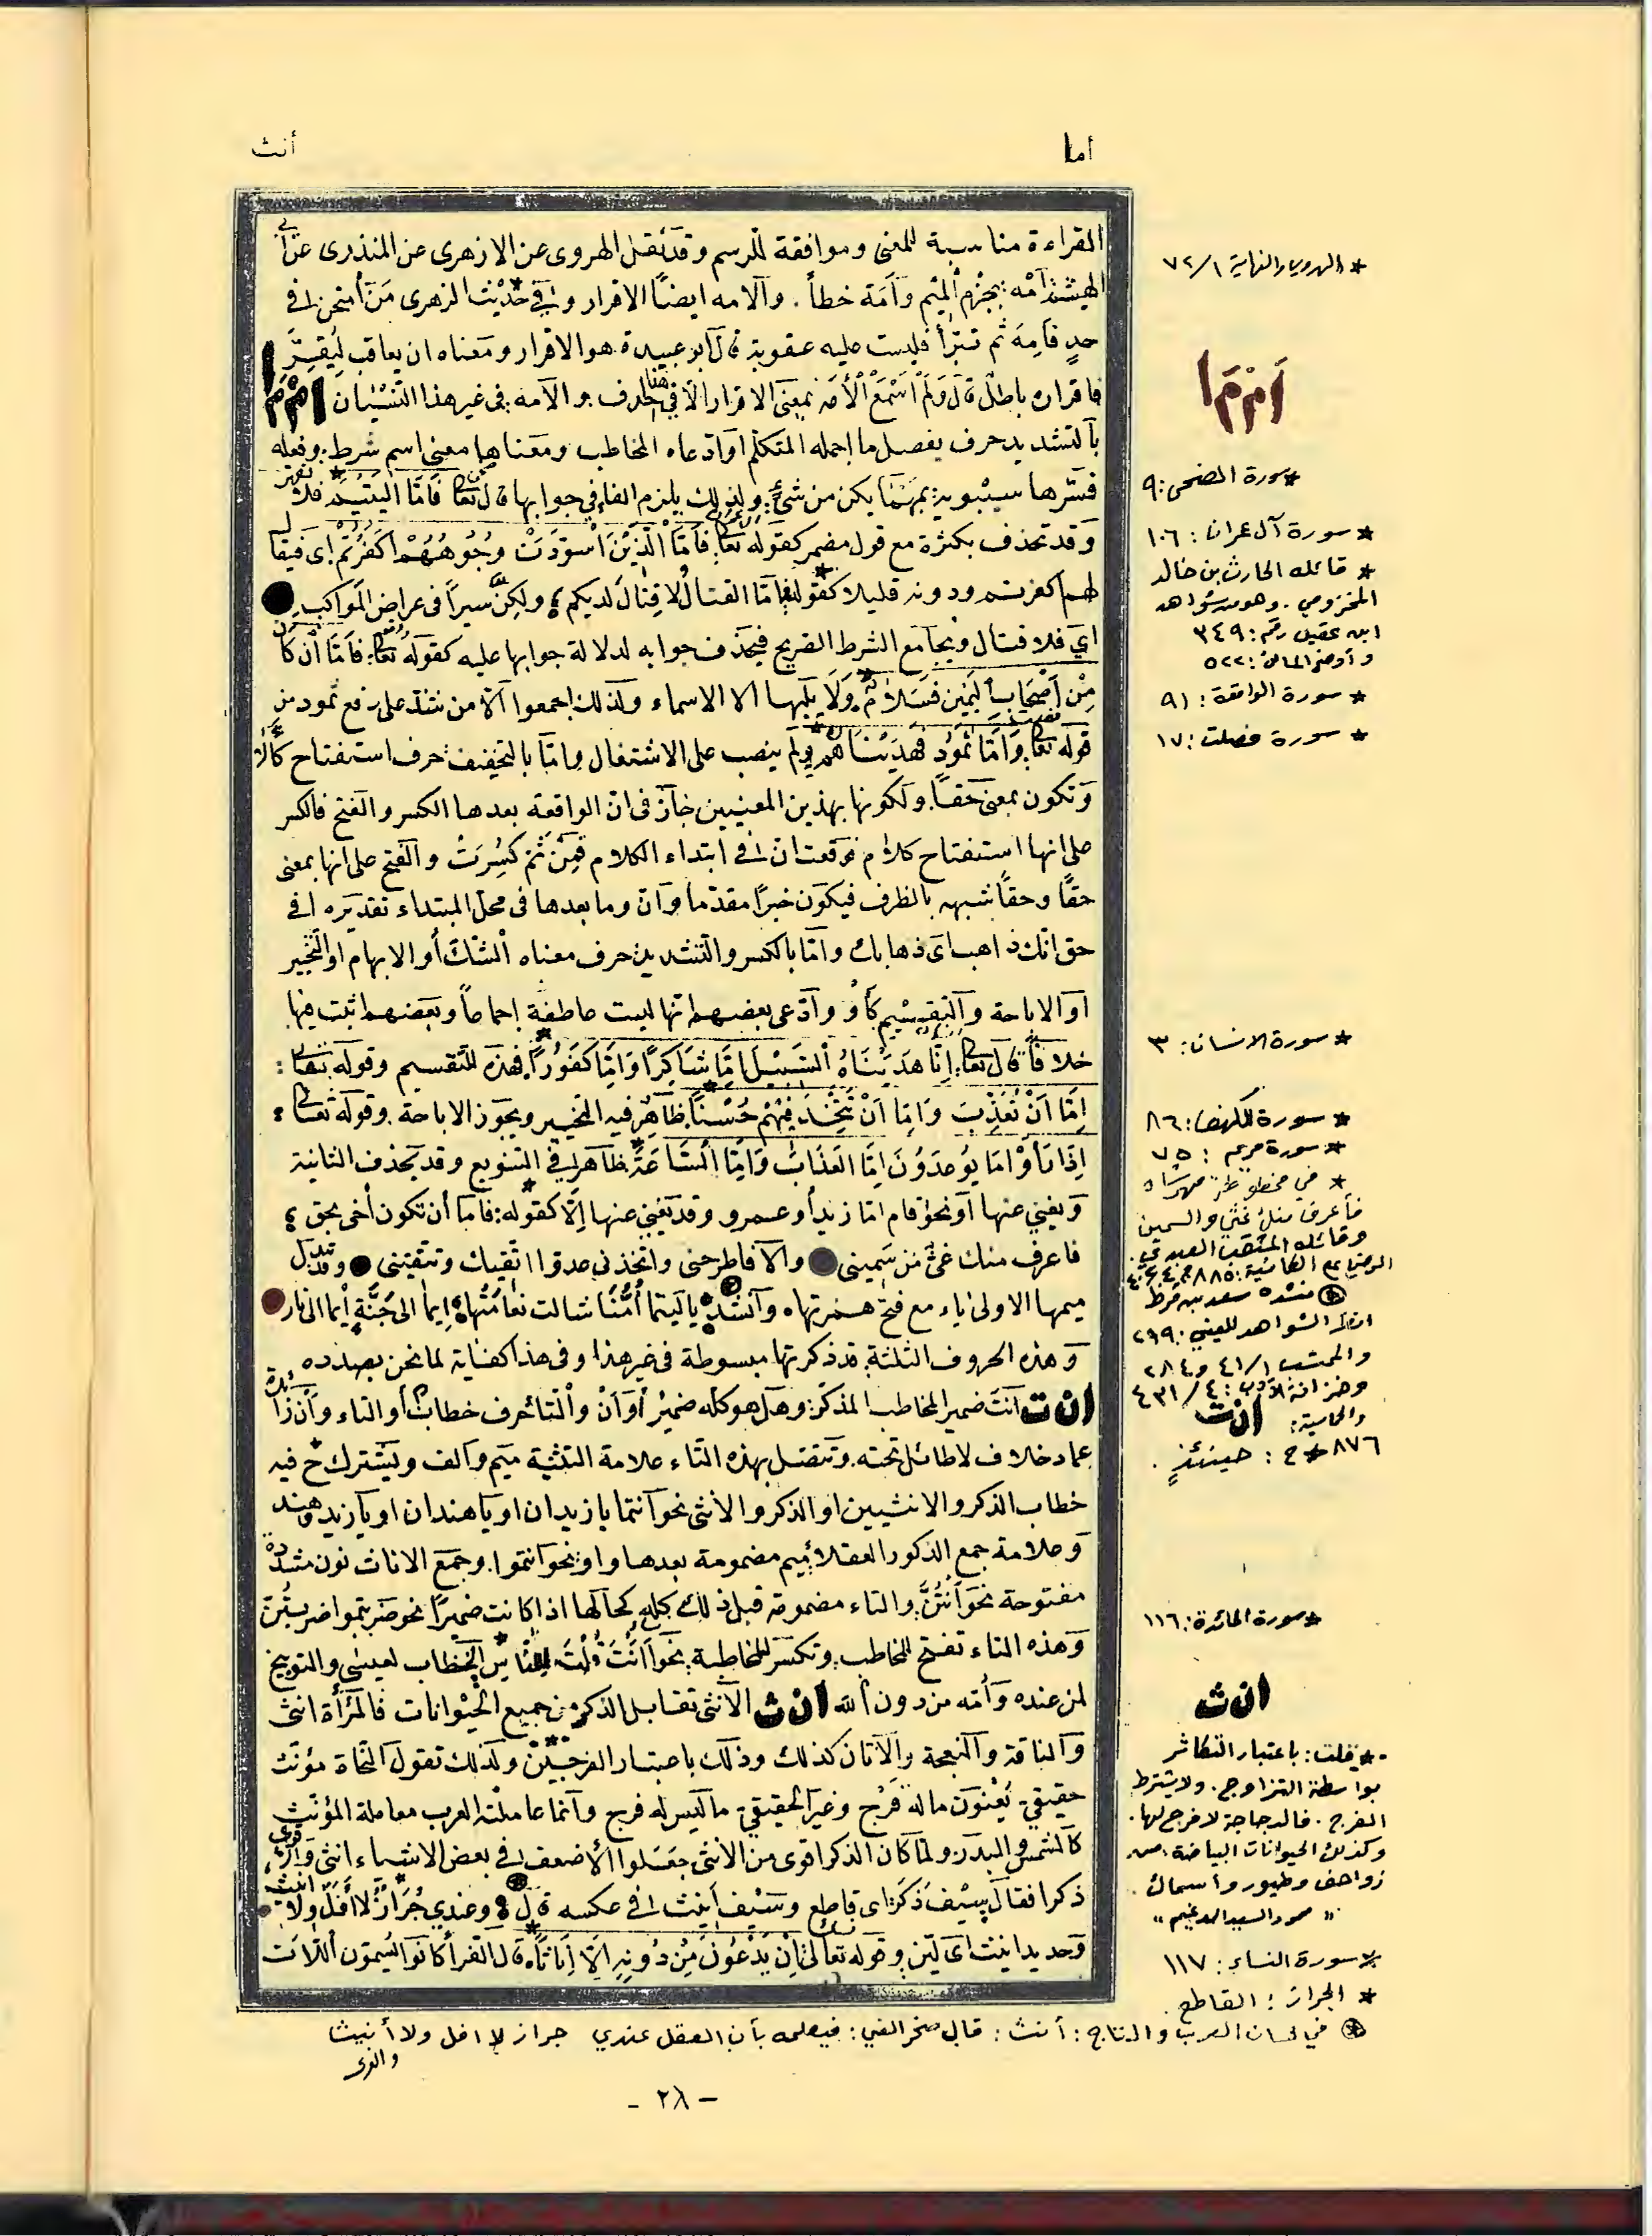 أما
أنث
القراءة مناسبة للمعنى وموافقة للرسم وقد نقل الهروى عن الازهرى عن المنذرى عن أبي
الهيثم أمه بجزم الميم وأمه خطأ . والامه ايضًا الاقرار وفي حديث الزهرى من أمتحن في
حدٍ فأمه ثم تبرأ فليست عليه عقوبة قال ابو عبيدة هو الاقرار ومعناه ان يعاقب ليقرّ
فاقراره باطل قال ولم أسمع الأمه بمعنى الاقرار الا في هذا والامه في غير هذا النسيان ام م ا
بالتشديد حرف يفصل ما اجمله المتكلم او ادعاه المخاطب ومعناها معنى اسم شرط وفعله
فسّرها سيبويه بمهما يكن من شئ ولذلك يلزم الفاء في جوابها قال تعالى فَأمَّا اليَتيمَ فلا تقهر
وقد تحذف بكثرة مع قول مضمر كقوله تعالى فَأمَّا الَّذينَ اسْوَدَّتْ وُجُوهُهُمْ اكَفَرْتُمْ اى فيقال
لهم اكفرتم ودونه قليلا كقوله فامّا القتال لا قتال لديكم ؛ ولكنّ سيراً فى عراض المواكب
اى فلا قتال ويجامع الشرط الصريح فيحذف جوابه لدلالة جوابها عليه كقوله تعالى فَأمَّا أنْ كَانَ
مِنْ أصْحَابِ اليَمينِ فَسَلامٌ وَلَا يليها الا الاسماء ولذلك اجمعوا الا من شذ على رفع ثمود من
قوله تعالى وَأمَّا ثَمُودُ فَهَدَيْنَاهُمْ ولم ينصب على الاشتغال واما بالتخفيف حرف استفتاح كألا
وتكون بمعنى حقاً ولكونها بهذين المعنيين جاز فى انّ الواقعة بعدها الكسر والفتح فالكسر
على انها استفتاح كلام فوقعت ان فى ابتداء الكلام فمن ثم كُسِرَتْ والفتح على انها بمعنى
حقًا وحقًا شبهه بالظرف فيكون خبرًا مقدّما وان وما بعدها فى محل المبتداء تقديره افى
حق انّك ذاهب اى ذهابك وامّا بالكسر والتشديد حرف معناه الشك أو الابهام او التخيير
او الاباحة والتقسيم كأو وادعى بعضهم انها ليست عاطفة إجماعاً وبعضهم اثبت فيها
خلافاً قال تعالى إنَّا هَدَيْنَاهُ السَّبيلَ إمَّا شَاكِرًا وَإمَّا كَفُورًا فهذه للتقسيم وقوله تعالى :
إمَّا أنْ تُعَذِّبَ وَإمَّا أنْ تَتَّخِذَ فيهِمْ حُسْنًا ظاهر فيه التخيير ويجوز الاباحة وقوله تعالى ؛
إذَا رَأوْا مَا يُوعَدُونَ إمَّا العَذَابَ وَإمَّا السَّاعَةَ ظاهر فى التنويع وقد يحذف الثانية
ويغنى عنها او نحو قام اما زيد أو عمرو وقد يغنى عنها إلّا كقوله : فاما أن تكون أخى بحق ؛
فاعرف منك غثى من سمينى والا فاطرحنى واتخذنى عدوا اتقيك وتتقينى وقد تبدل
ميمها الاولى ياء مع فتح همزتها وأنشد يا ليتما أُمُّنا شالت نعامَتُها إيما الى جَنّةٍ أيما الى نار
وهذه الحروف الثلثة قد ذكرتها مبسوطة فى غير هذا وفى هذا كفاية لما نحن بصدده
ان ت انت ضمير المخاطب المذكر وهل هو كله ضمير أو أنْ والتا حرف خطاب أو التاء وأن زائدة
عماد خلاف لا طائل تحته وتتصل بهذه التاء علامة التثنية ميم والف ويشترك ح فيه
خطاب الذكر والانثيين او الذكر والانثى نحو انتما يا زيدان او يا هندان او يا زيد وهند
وعلامة جمع الذكور العقلاء ميم مضمومة بعدها واو نحو انتموا وجمع الاناث نون مشددة
مفتوحة نحو انتُنَّ والتاء مضمومة قبل ذلك كله كحالها اذا كانت ضميرًا نحو ضربتموا ضربتُنّ
وهذه التاء تفتح للمخاطب وتكسر للمخاطبة نحو أأنْتَ قُلْتَ لِلنَّاسِ الخطاب لعيسى والتوبيخ
لمن عنده وأمه من دون الله ان ث الانثى تقابل الذكر من جميع الحيوانات فالمرأة انثى
والناقة والنعجة والاتان كذلك وذلك باعتبار الفرجين ولذلك تقول النحاة مؤنث
حقيقى يعنون ماله فرج وغير الحقيقى ما ليس له فرج وانما عاملته العرب معاملة المؤنث
كالشمس والبدر ولما كان الذكر اقوى من الانثى جعلوا الأضعف فى بعض الاشياء انثى والاقوى
ذكرا فقال سيف ذكر اى قاطع وسيف انيث فى عكسه قال وعندي جُرازٌ لا أفلّ ولا انيث
وحديد انيث اى ليّن وقوله تعالى إنْ يَدْعُونَ مِنْ دُونِهِ إلَّا إنَاثًا قال الفرأ كانوا يسمّون اللّات
* الهروي والنهاية ٧٢/١
ا م م ا
* سورة الضحى : ٩
* سورة آل عمران : ١٠٦
* قائله الحارث بن خالد
المخزومي . وهو من شواهد
ابن عقيل رقم : ٣٤٩
و أوضح المسالك : ٥٢٢
* سورة الواقعة : ٩١
* سورة فصلت : ١٧
* سورة الانسان : ٣
* سورة الكهف : ٨٦
* سورة مريم : ٧٥
فأعرف منك غثي والسمين
وقائله المثقب العبدي .
منشده سعد بن قرط
انظر الشواهد للعيني : ٢٦٩
والمحتسب ٤١/١ و ٢٨٤
وخزانة الأدب : ٤ / ٤٣١
ان ت
٨٧٦ * ح : حينئذٍ .
* سورة المائدة : ١١٦
ان ث
* قلت : باعتبار التكاثر
بواسطة التزاوج . ولا يشترط
الفرج . فالدجاجة لا فرج لها .
وكذلك الحيوانات البياضة ، من
زواحف وطيور وأسماك .
" محمود السيد الدغيم "
* سورة النساء : ١١٧
* الجراز : القاطع .
في لسان العرب والتاج : أنث : قال صخر الغي : فيعلمه بأن العقل عندي جراز لا افل ولا أنيث
والعزى
- ٢٨ -